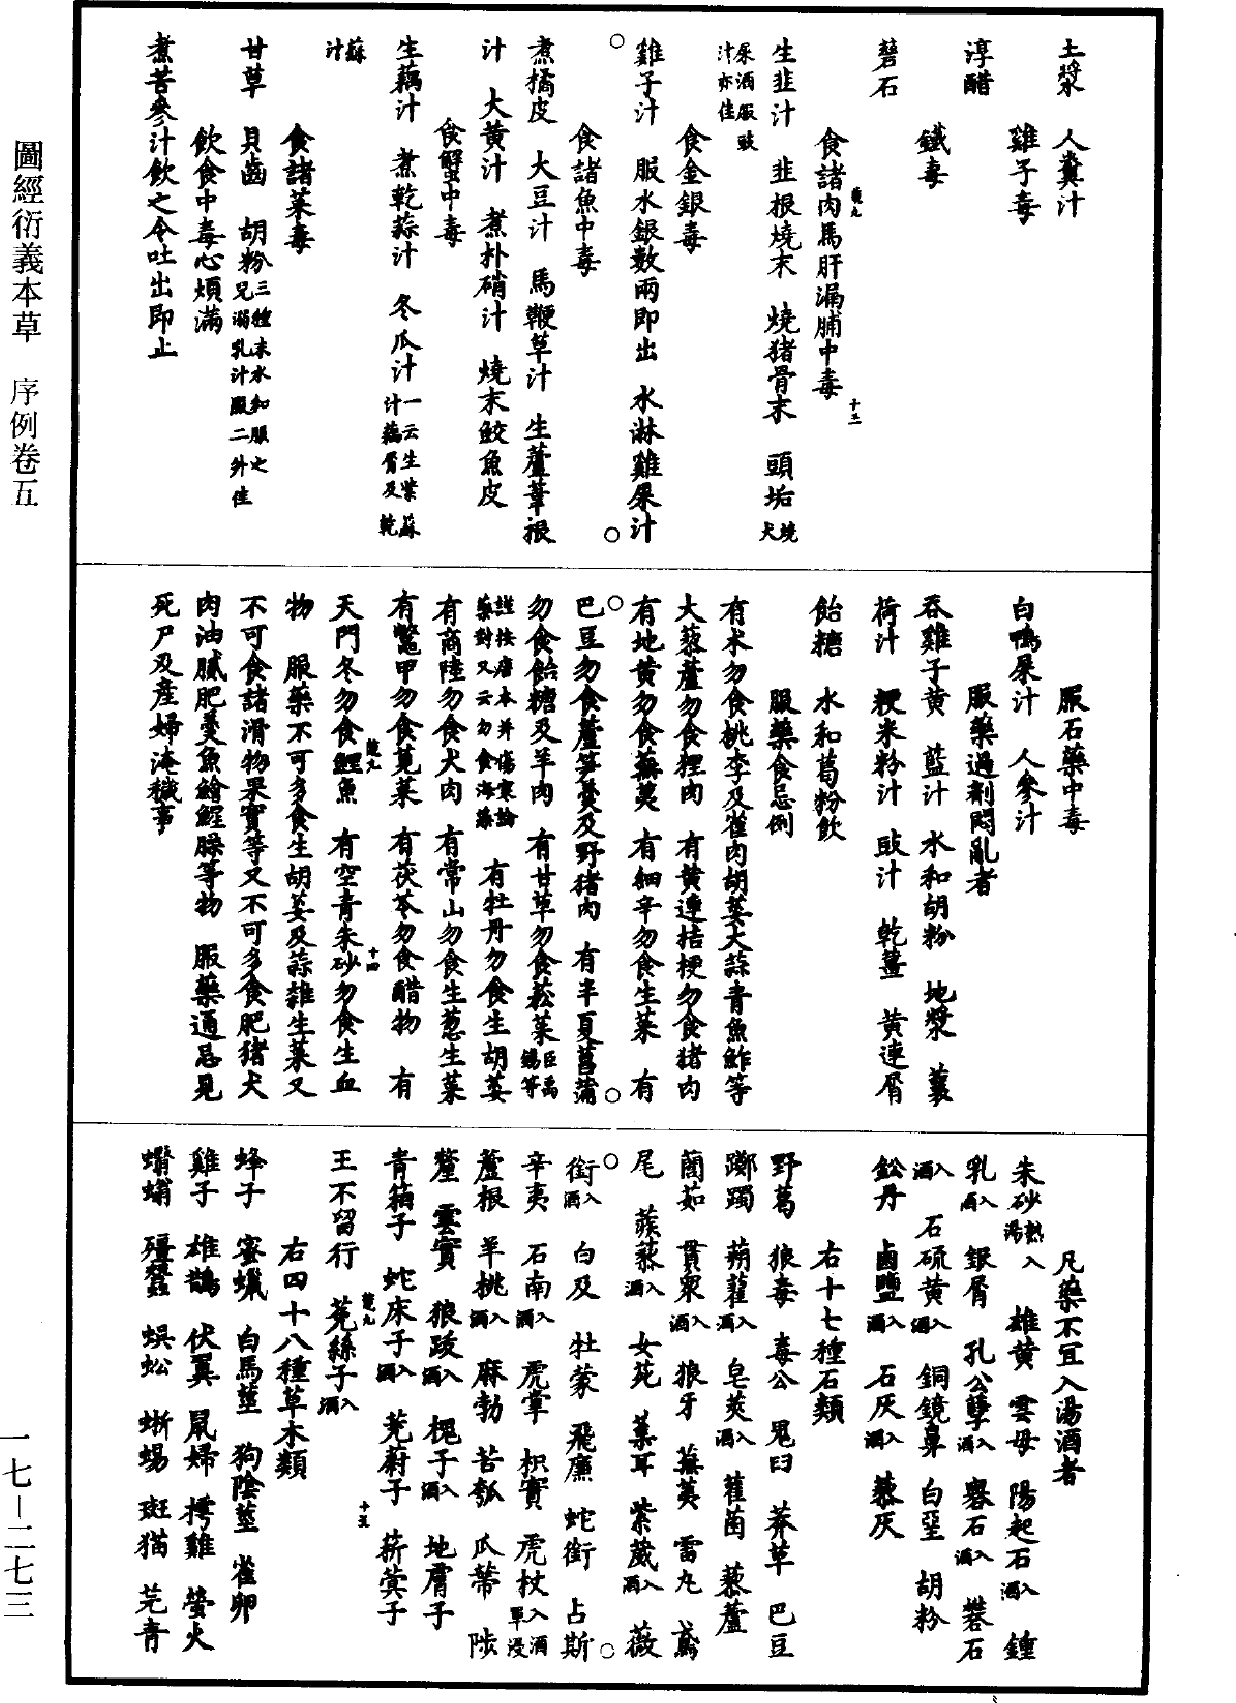 土漿　人糞汁
雞子毒
淳醋
鐵毒
礬石
食諸肉馬肝漏脯中毒
生韭汁　韭根燒末　燒猪骨末　頭垢　燒犬
屎酒服豉汁亦佳
食金銀毒
雞子汁　服水銀數兩即出　水淋雞屎汁
食諸魚中毒
煮橘皮　大豆汁　馬鞭草汁　生蘆葦根
汁　大黃汁　煮朴硝汁　燒末鮫魚皮
食蟹中毒
生藕汁　煮乾蒜汁　冬瓜汁　一云生紫蘇汁藕屑及乾
蘇汁
食諸菜毒
甘草　貝齒　胡粉　三種末水和服之兒溺乳汁服二升佳
飲食中毒心煩滿
煮苦參汁飲之令吐出即止
服石藥中毒
白鴨屎汁　人參汁
服藥過劑悶亂者
吞雞子黃　藍汁　水和胡粉　地漿　蘘
荷汁　粳米粉汁　豉汁　乾薑　黃連屑
飴糖　水和葛粉飲
服藥食忌例
有术勿食桃李及雀肉胡荽大蒜青魚鮓等
大藜蘆勿食狸肉　有黃連桔梗勿食猪肉
有地黃勿食蕪荑　有細辛勿食生菜　有
巴豆勿食蘆笋羹及野猪肉　有半夏菖蒲
勿食飴糖及羊肉　有甘草勿食菘菜　臣禹錫等
謹按唐本并傷寒論藥對又云勿食海藻　有牡丹勿食生胡荽
有商陸勿食犬肉　有常山勿食生葱生菜
有鱉甲勿食莧菜　有茯苓勿食醋物　有
天門冬勿食鯉魚　有空青朱砂勿食生血
物　服藥不可多食生胡荽及蒜雜生菜又
不可食諸滑物果實等又不可多食肥猪犬
肉油膩肥羹魚鱠腥臊等物　服藥通忌見
死尸及產婦淹穢事
凡藥不宜入湯酒者
朱砂熟入湯　雄黃　雲母　陽起石入酒　鍾
乳入酒　銀屑　孔公孽入酒　礜石入酒　礬石
入酒　石硫黃入酒　銅鏡鼻　白堊　胡粉
鈆丹　鹵鹽入酒　石灰入酒　藜灰
右十七種石類
野葛　狼毒　毒公　鬼臼　莽草　巴豆
躑躅　蒴藋入酒　皂莢入酒　雚菌　藜蘆
䕡茹　貫衆入酒　狼牙　蕪荑　雷丸　鳶
尾　蒺藜入酒　女菀　葈耳　紫葳入酒　薇
銜入酒　白及　牡蒙　飛廉　蛇銜　占斯
辛夷　石南入酒　虎掌　枳實　虎杖入酒單浸
蘆根　羊桃入酒　麻勃　苦瓠　瓜蒂　陟
釐　雲實　狼跋入酒　槐子入酒　地膚子
青葙子　蛇床子入酒　茺蔚子　菥蓂子
王不留行　菟絲子入酒
右四十八種草木類
蜂子　蜜蠟　白馬莖　狗陰莖　雀卵
雞子　雄鵲　伏翼　鼠婦　樗雞　螢火
蠐螬　殭蠶　蜈蚣　蜥蜴　斑猫　芫青
圖經衍義本草　序例卷五
一七－二七三